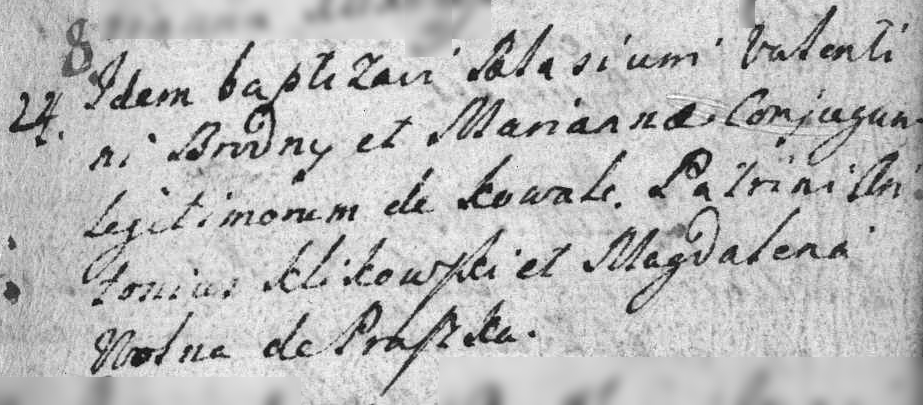 8
24. Idem baptizavi Blasium Valenti
ni Brodny et Mariannæ Conjugum
legitimorum de Kowale. Patrini An
tonius Klikowski et Magdalena
Wolna de Praszka.